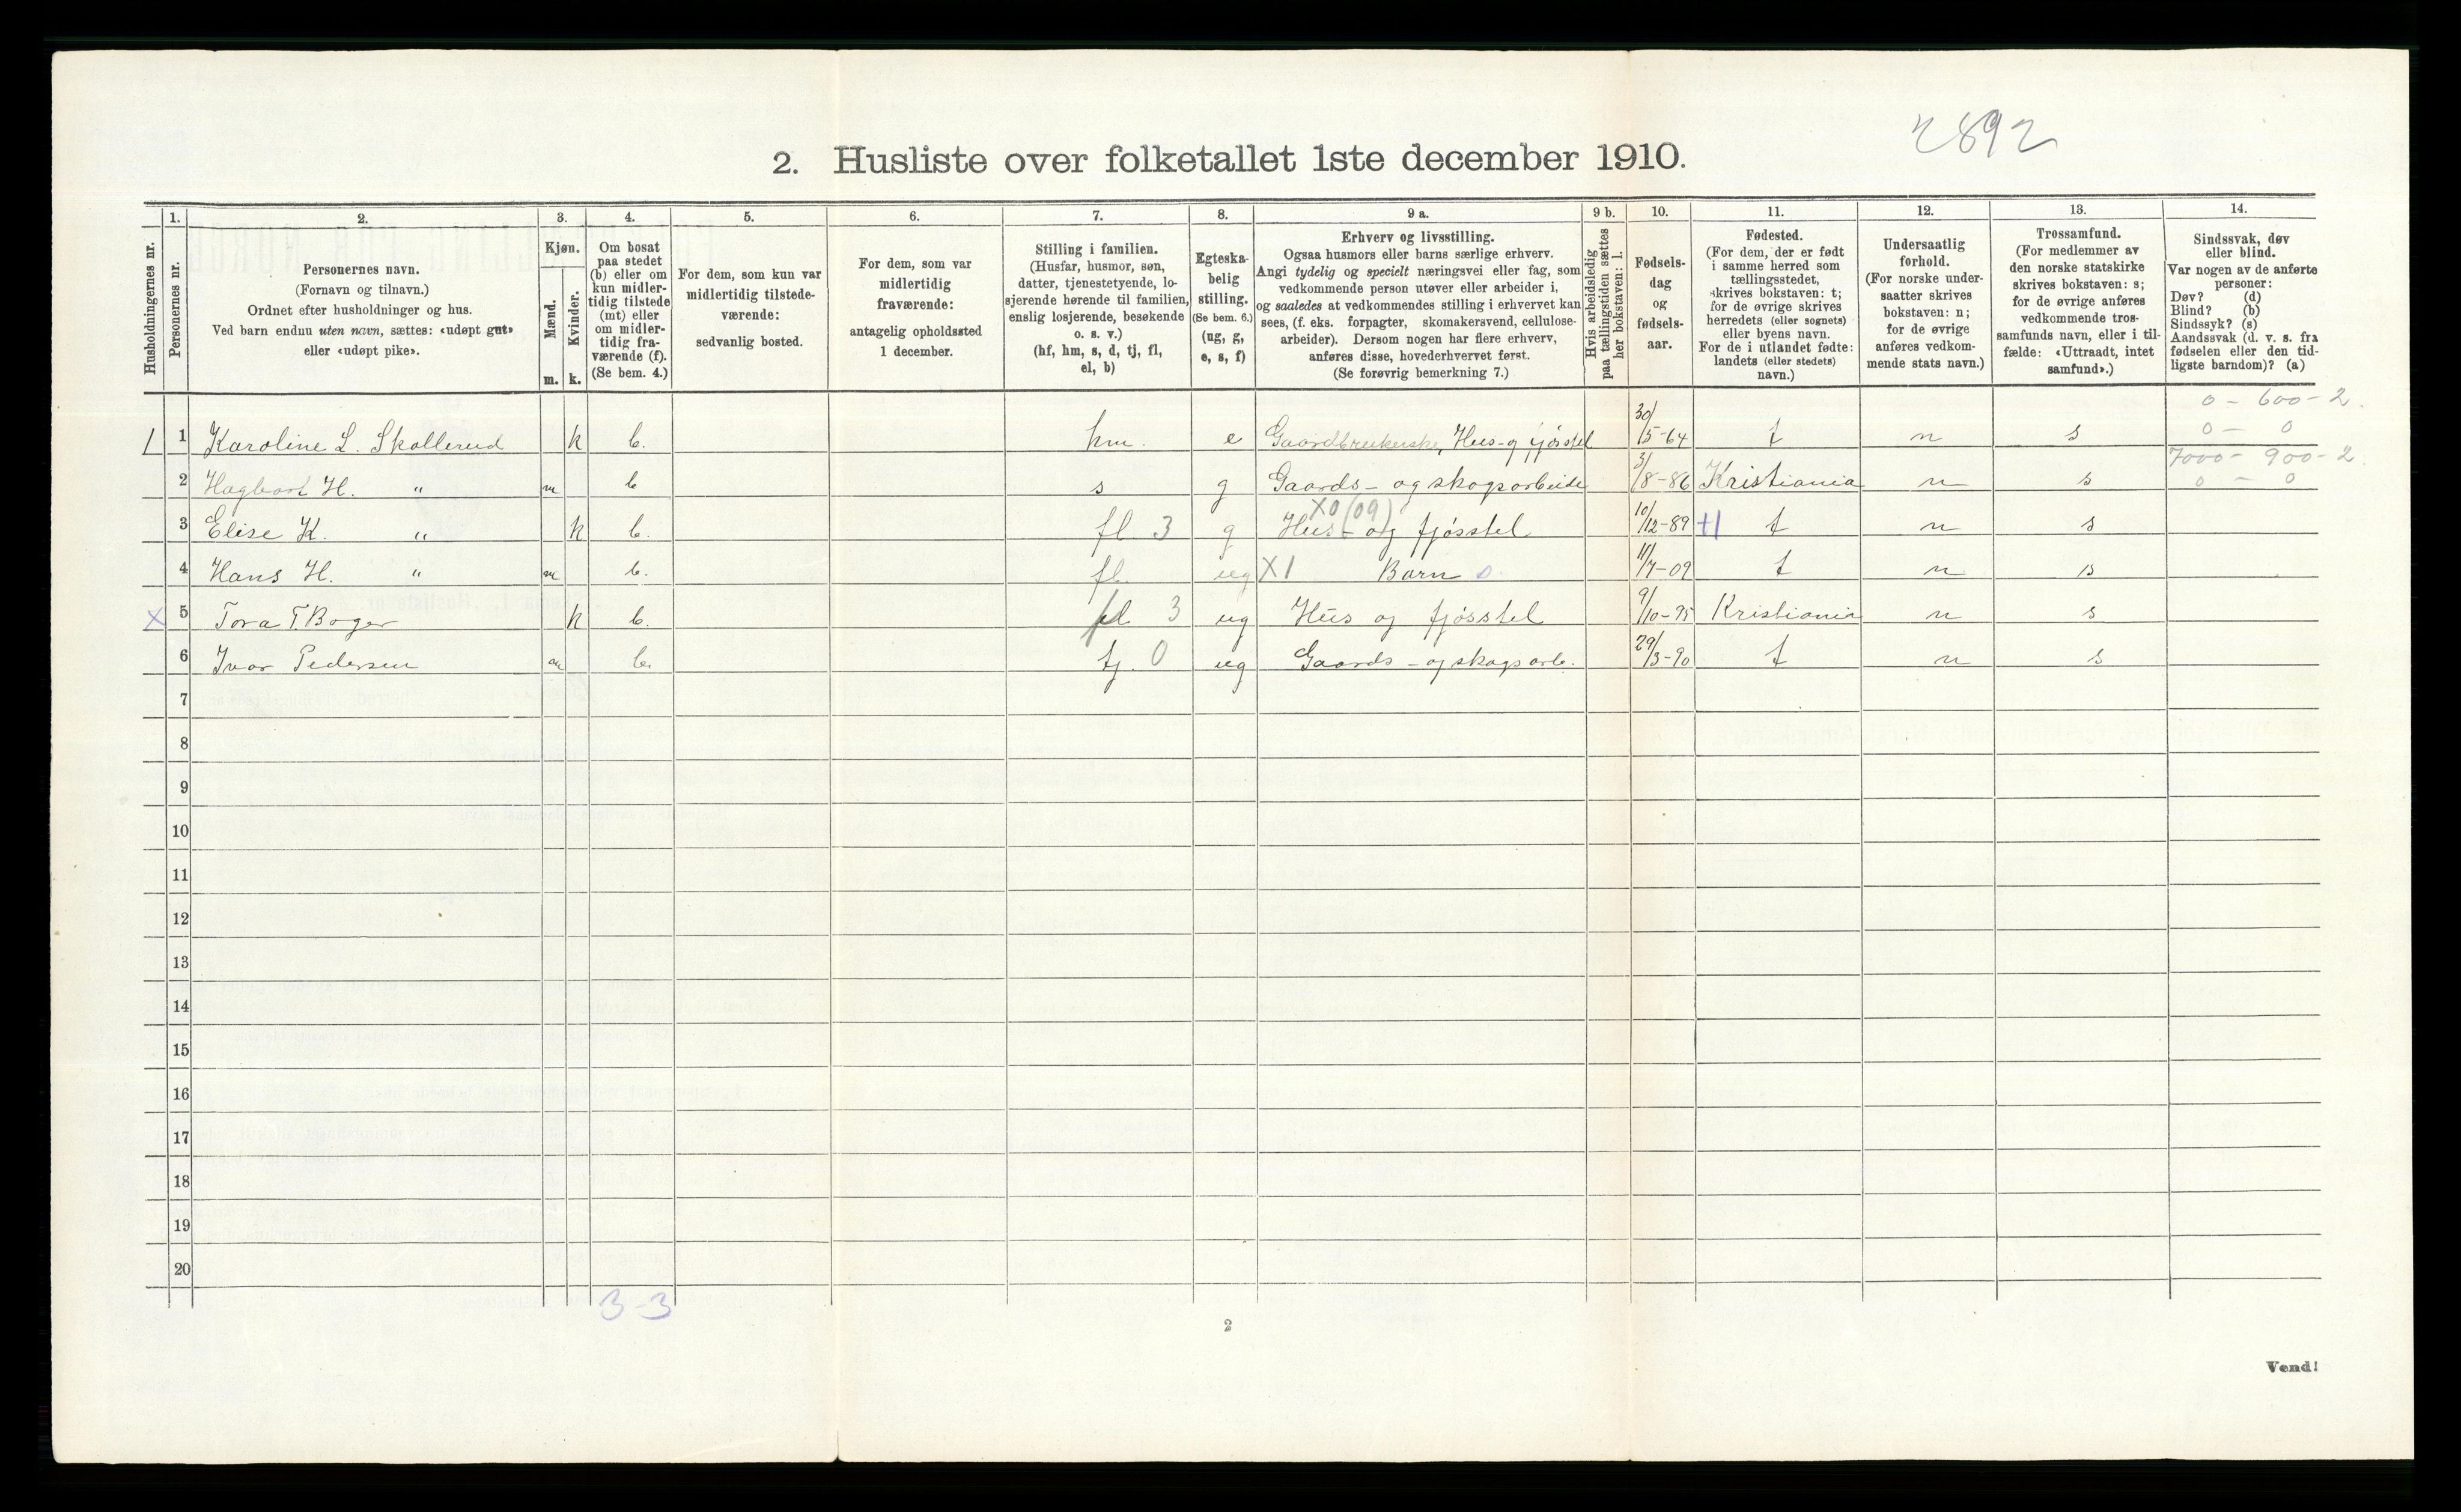 2892
2. Husliste over folketallet 1ste december 1910.
Husholdningernes nr.
1.
Personernes nr.
2.
Personernes navn.
(Fornavn og tilnavn.)
Ordnet efter husholdninger og hus.
Ved barn endnu uten navn, sættes: «udøpt gut»
eller «udøpt pike».
3.
Kjøn.
Mænd.
Kvinder.
m. k.
4.
Om bosat
paa stedet
(b) eller om
kun midler-
tidig tilstede
(mt) eller
om midler-
tidig fra-
værende (f).
(Se bem. 4.)
5.
For dem, som kun var
midlertidig tilstede-
værende:
sedvanlig bosted.
6.
For dem, som var
midlertidig
fraværende:
antagelig opholdssted
1 december.
7.
Stilling i familien.
(Husfar, husmor, søn,
datter, tjenestetyende, lo-
sjerende hørende til familien,
enslig losjerende, besøkende
o. s. v.)
(hf, hm, s, d, tj, fl,
el, b)
8.
Egteska-
belig
stilling.
(Se bem. 6.)
(ug, g,
e, s, f)
9 a.
Erhverv og livsstilling.
Ogsaa husmors eller barns særlige erhverv.
Angi tydelig og specielt næringsvei eller fag, som
vedkommende person utøver eller arbeider i,
og saaledes at vedkommendes stilling i erhvervet kan
sees, (f. eks. forpagter, skomakersvend, cellulose-
arbeider). Dersom nogen har flere erhverv,
anføres disse, hovederhvervet først.
(Se forøvrig bemerkning 7.)
9 b.
Hvis arbeidsledig
paa tællingstiden sættes
her bokstaven: l.
10.
Fødsels-
dag
og
fødsels-
aar.
11.
Fødested.
(For dem, der er født
i samme herred som
tællingsstedet,
skrives bokstaven: t;
for de øvrige skrives
herredets (eller sognets)
eller byens navn.
For de i utlandet fødte:
landets (eller stedets)
navn.)
12.
Undersaatlig
forhold.
(For norske under-
saatter skrives
bokstaven: n;
for de øvrige
anføres vedkom-
mende stats navn.)
13.
Trossamfund.
(For medlemmer av
den norske statskirke
skrives bokstaven: s;
for de øvrige anføres
vedkommende tros-
samfunds navn, eller i til-
fælde: «Uttraadt, intet
samfund».)
14.
Sindssvak, døv
eller blind.
Var nogen av de anførte
personer:
Døv? (d)
Blind? (b)
Sindssyk? (s)
Aandssvak (d. v. s. fra
fødselen eller den tid-
ligste barndom)? (a)
0 - 600 - 2.
1 1 Karoline L. Skollerud k b. hm. e Gaardbrukerske, Hus- og fjøsstel 30/5-64 t n s 0 - 0
7000 - 900 - 2.
2 Hagbart H. " m b s g Gaards- og skogsarbeide 3/8-86 Kristiania n s 0 - 0
X0 (09)
3 Elise K. " k b. fl. 3 g Hus- og fjøsstel 10/12-89 +1 t n s
4 Hans H. " m b. fl. ug X1 Barn o. 11/7-09 t n s
X 5 Tora T. Boger k b. fl 3 ug Hus og fjøsstel 9/10-95 Kristiania n s
6 Ivar Pedersen m b. tj. 0 ug Gaards- og skogsarb. 29/3-90 t n s
7
8
9
10
11
12
13
14
15
16
17
18
19
20
3-3
2
Vend!